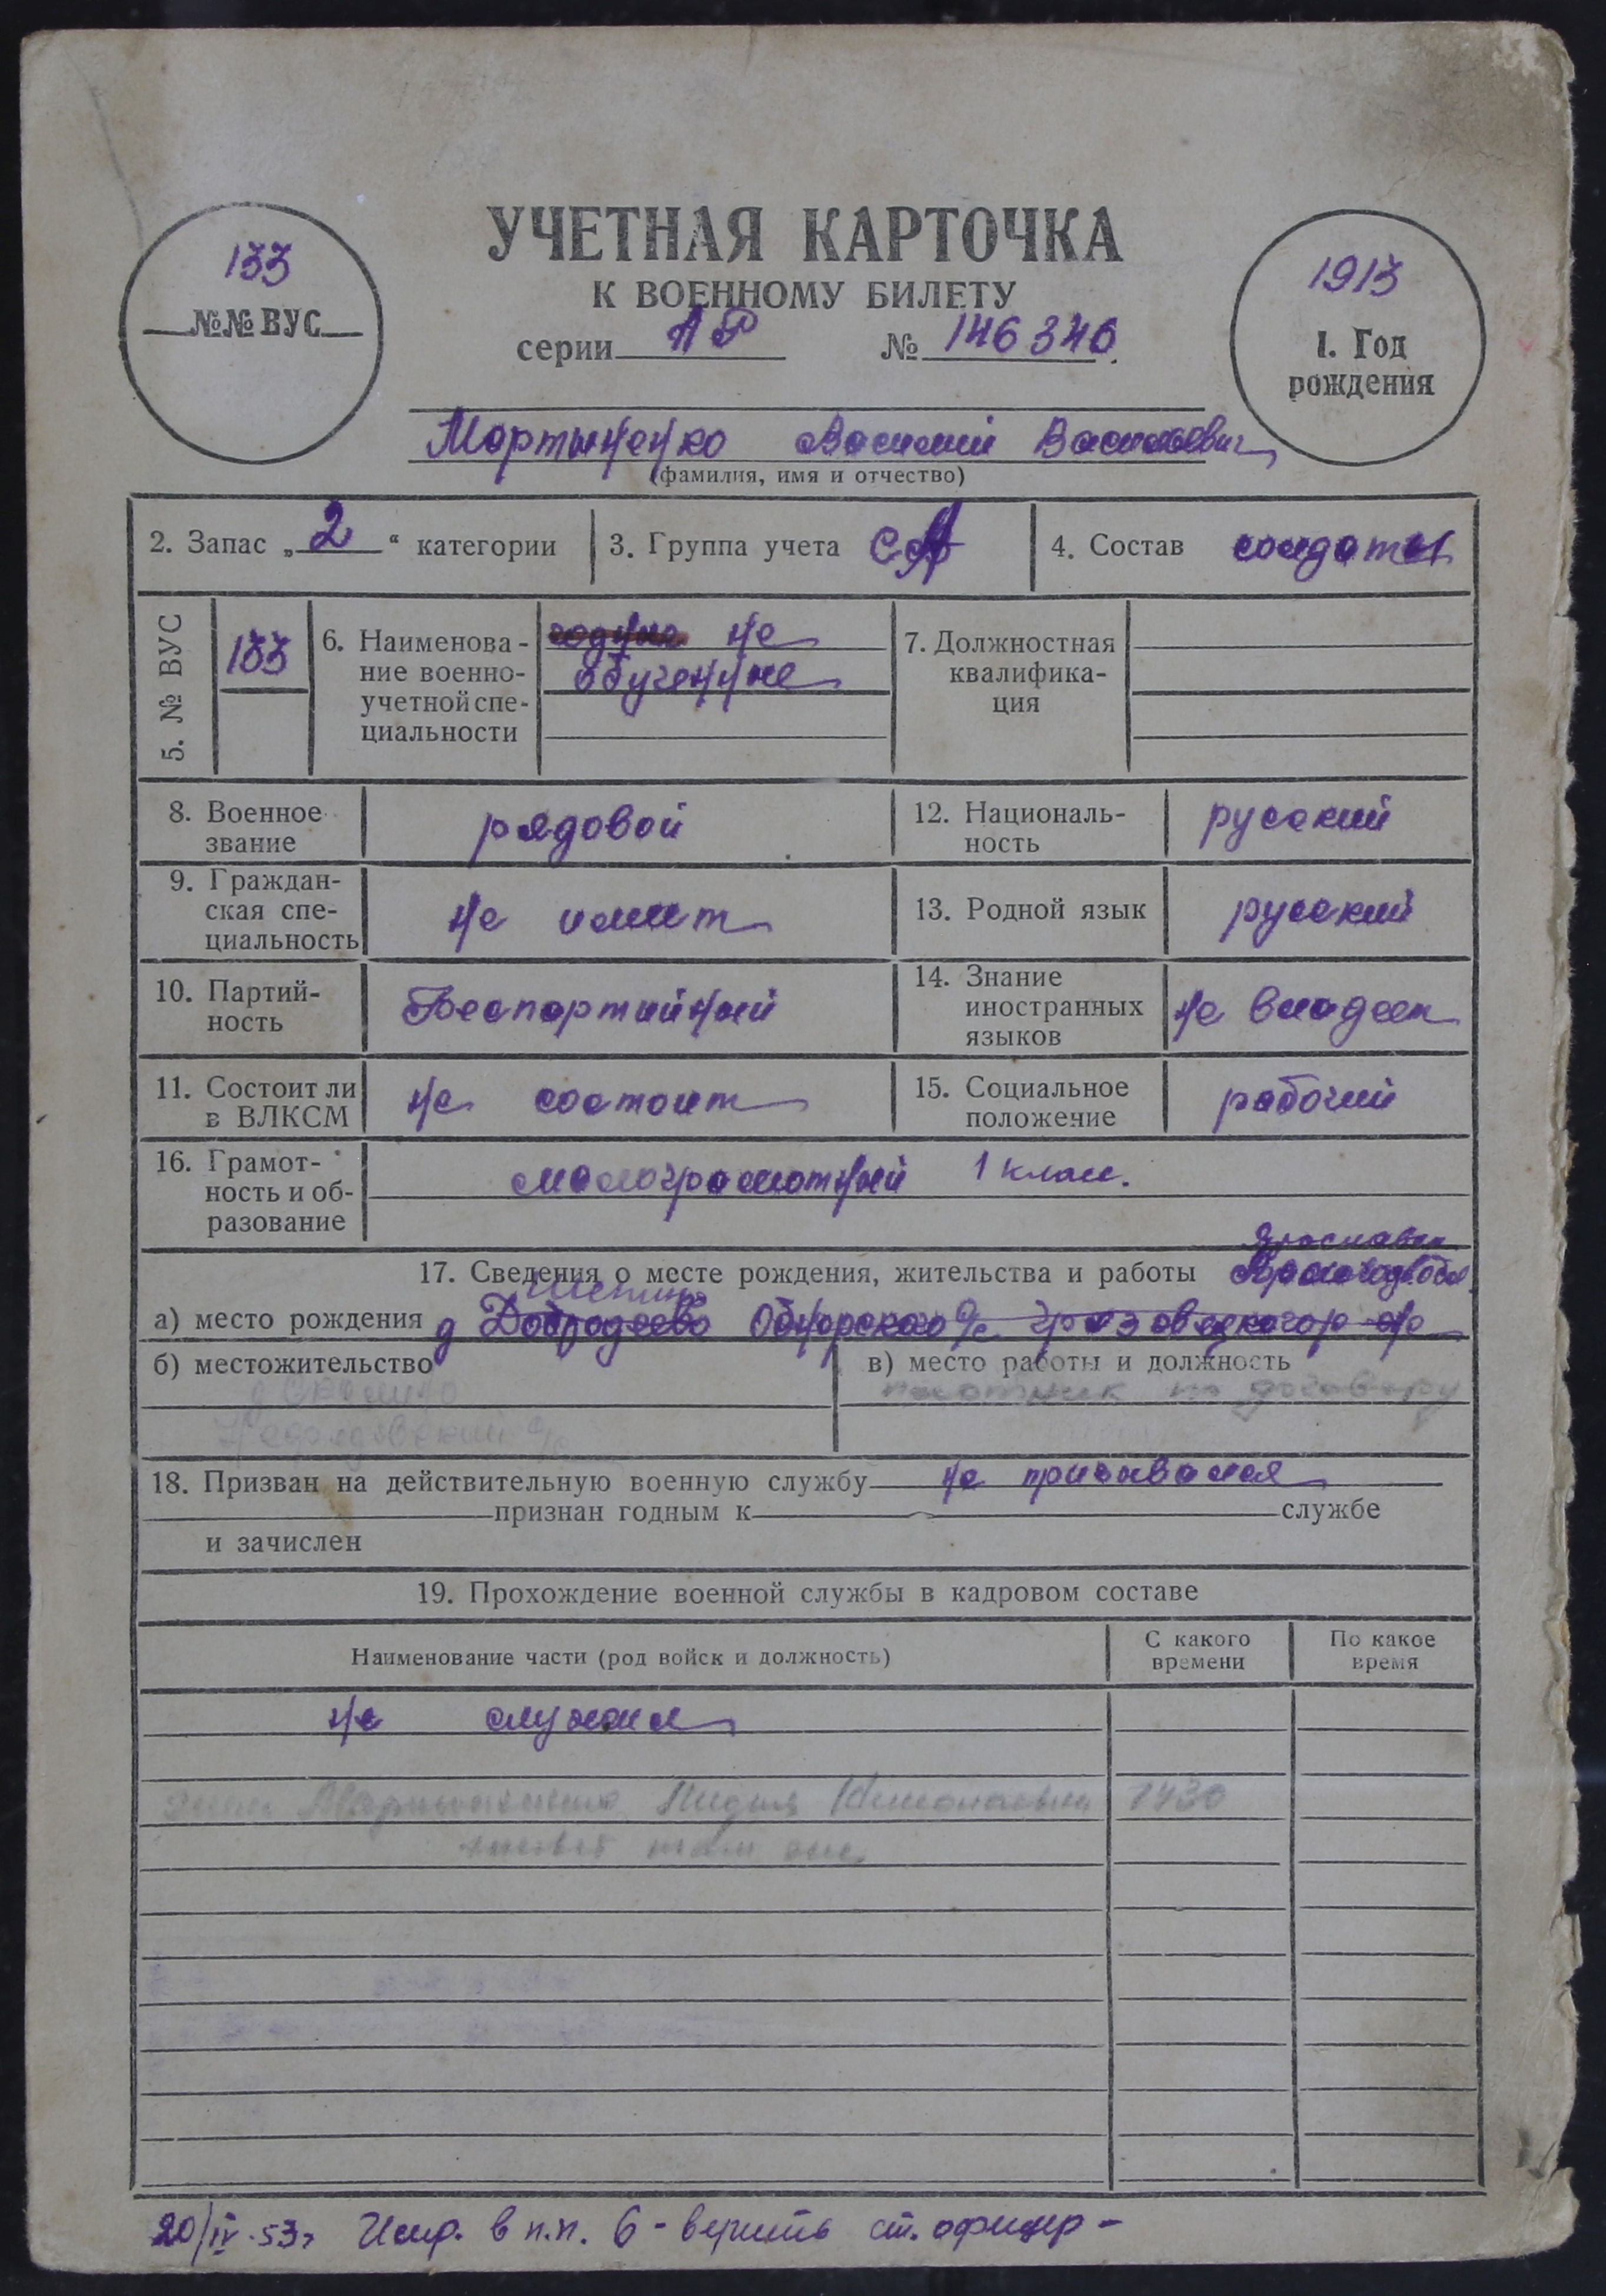 УЧЕТНАЯ КАРТОЧКА
К ВОЕННОМУ БИЛЕТУ
серии АР № 146346
133
№№ ВУС
1913
1. Год
рождения
Мартыненко Василий Васильевич
(фамилия, имя и отчество)
2. Запас „2“ категории
3. Группа учета СА
4. Состав солдаты
5. № ВУС
133
6. Наименова-
ние военно-
учетной спе-
циальности
годные не
обученные
7. Должностная
квалифика-
ция
8. Военное
звание
рядовой
12. Националь-
ность
русский
9. Граждан-
ская спе-
циальность
не имеет
13. Родной язык
русский
10. Партий-
ность
Беспартийный
14. Знание
иностранных
языков
не владеет
11. Состоит ли
в ВЛКСМ
не состоит
15. Социальное
положение
рабочий
16. Грамот-
ность и об-
разование
малограмотный 1 класс.
17. Сведения о месте рождения, жительства и работы
а) место рождения д Добродеево Обнорского с/с Грязовецкого р-на
б) местожительство
в) место работы и должность
плотник по договору
18. Призван на действительную военную службу не призывался
признан годным к службе
и зачислен
19. Прохождение военной службы в кадровом составе
Наименование части (род войск и должность)
С какого
времени
По какое
время
не служил
жена Мартыненко Лидия
там же
20/IV-53г Испр. в п.п. 6 - верить ст. офицер -